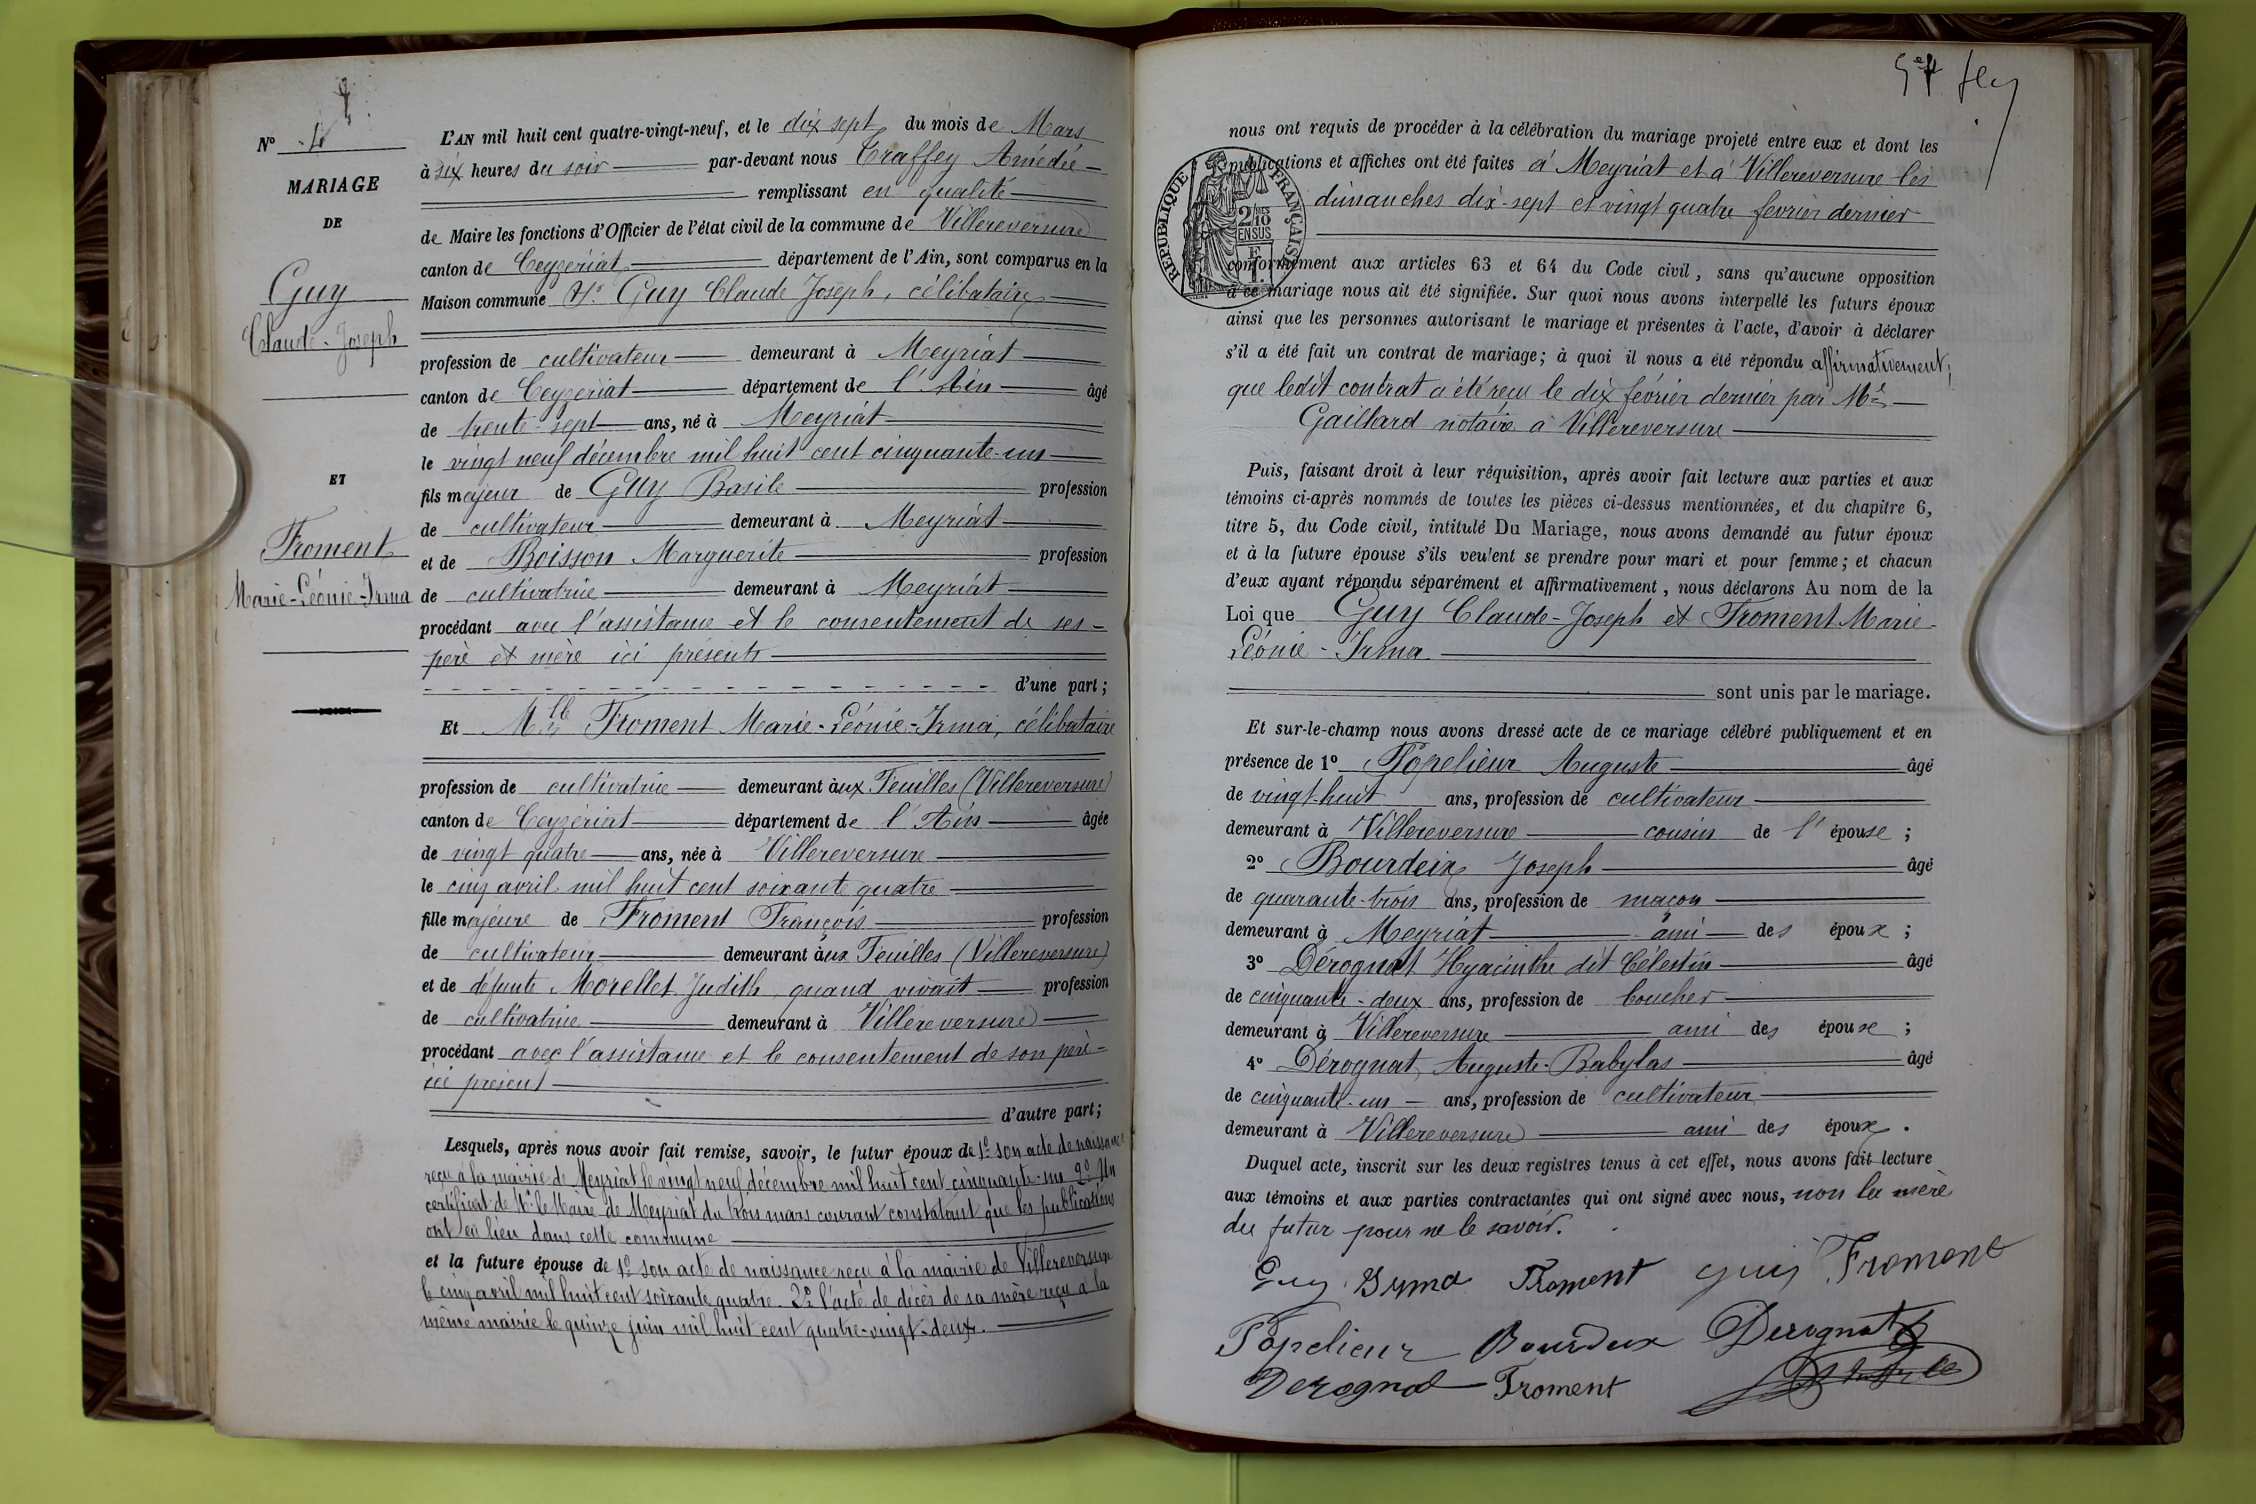 Nº 4
MARIAGE
DE
Guy
Claude-Joseph
ET
Froment
Marie-Léonie-Irma
L'AN mil huit cent quatre-vingt-neuf, et le dix sept du mois de Mars
à six heures du soir par-devant nous Traffey Amédée
remplissant en qualité
de Maire les fonctions d'Officier de l'état civil de la commune de Villereversure
canton de Ceyzeriat département de l'Ain, sont comparus en la
Maison commune Mr Guy Claude Joseph, célibataire
profession de cultivateur demeurant à Meyriat
canton de Ceyzeriat département de l'Ain âgé
de trente-sept ans, né à Meyriat
le vingt neuf décembre mil huit cent cinquante-un
fils majeur de Guy Basile profession
de cultivateur demeurant à Meyriat
et de Boisson Marguerite profession
de cultivatrice demeurant à Meyriat
procédant avec l'assistance et le consentement de ses
père et mère ici présents
d'une part;
Et Mlle Froment Marie-Léonie-Irma, célibataire
profession de cultivatrice demeurant aux Feuilles (Villereversure)
canton de Ceyzériat département de l'Ain âgée
de vingt quatre ans, née à Villereversure
le cinq avril mil huit cent soixante quatre
fille majeure de Froment François profession
de cultivateur demeurant aux Feuilles (Villereversure)
et de défunte Morellet Judith, quand vivait profession
de cultivatrice demeurant à Villereversure
procédant avec l'assistance et le consentement de son père
ici présent
d'autre part;
Lesquels, après nous avoir fait remise, savoir, le futur époux de 1º son acte de naissance
reçu à la mairie de Meyriat le vingt neuf décembre mil huit cent cinquante-un 2º Un
certificat de Mr le Maire de Meyriat du trois mars courant constatant que les publications
ont eu lieu dans cette commune
et la future épouse de 1º son acte de naissance reçu à la mairie de Villereversure
le cinq avril mil huit cent soixante quatre. 2º l'acte de décès de sa mère reçu à la
même mairie le quinze juin mil huit cent quatre-vingt-deux.
nous ont requis de procéder à la célébration du mariage projeté entre eux et dont les
publications et affiches ont été faites à Meyriat et à Villereversure les
dimanches dix-sept et vingt quatre fevrier dernier
RÉPUBLIQUE FRANÇAISE
2 10mes EN SUS
conformément aux articles 63 et 64 du Code civil, sans qu'aucune opposition
à ce mariage nous ait été signifiée. Sur quoi nous avons interpellé les futurs époux
ainsi que les personnes autorisant le mariage et présentes à l'acte, d'avoir à déclarer
s'il a été fait un contrat de mariage; à quoi il nous a été répondu affirmativement;
que ledit contrat a été reçu le dix février dernier par Me
Gaillard notaire à Villereversure
Puis, faisant droit à leur réquisition, après avoir fait lecture aux parties et aux
témoins ci-après nommés de toutes les pièces ci-dessus mentionnées, et du chapitre 6,
titre 5, du Code civil, intitulé Du Mariage, nous avons demandé au futur époux
et à la future épouse s'ils veulent se prendre pour mari et pour femme; et chacun
d'eux ayant répondu séparément et affirmativement, nous déclarons Au nom de la
Loi que Guy Claude-Joseph et Froment Marie-
Léonie-Irma
sont unis par le mariage.
Et sur-le-champ nous avons dressé acte de ce mariage célébré publiquement et en
présence de 1º Popelieur Auguste âgé
de vingt-huit ans, profession de cultivateur
demeurant à Villereversure cousin de l'épouse;
2º Bourdeix Joseph âgé
de quarante-trois ans, profession de maçon
demeurant à Meyriat ami des époux;
3º Dérognat Hyacinthe dit Célestin âgé
de cinquante-deux ans, profession de boucher
demeurant à Villereversure ami des épouse;
4º Dérognat Auguste-Babylas âgé
de cinquante-un ans, profession de cultivateur
demeurant à Villereversure ami des époux.
Duquel acte, inscrit sur les deux registres tenus à cet effet, nous avons fait lecture
aux témoins et aux parties contractantes qui ont signé avec nous, non la mère
du futur pour ne le savoir.
Guy Irma Froment Guy Froment
Popelieur Bourdeix Derognat
Derognat Froment